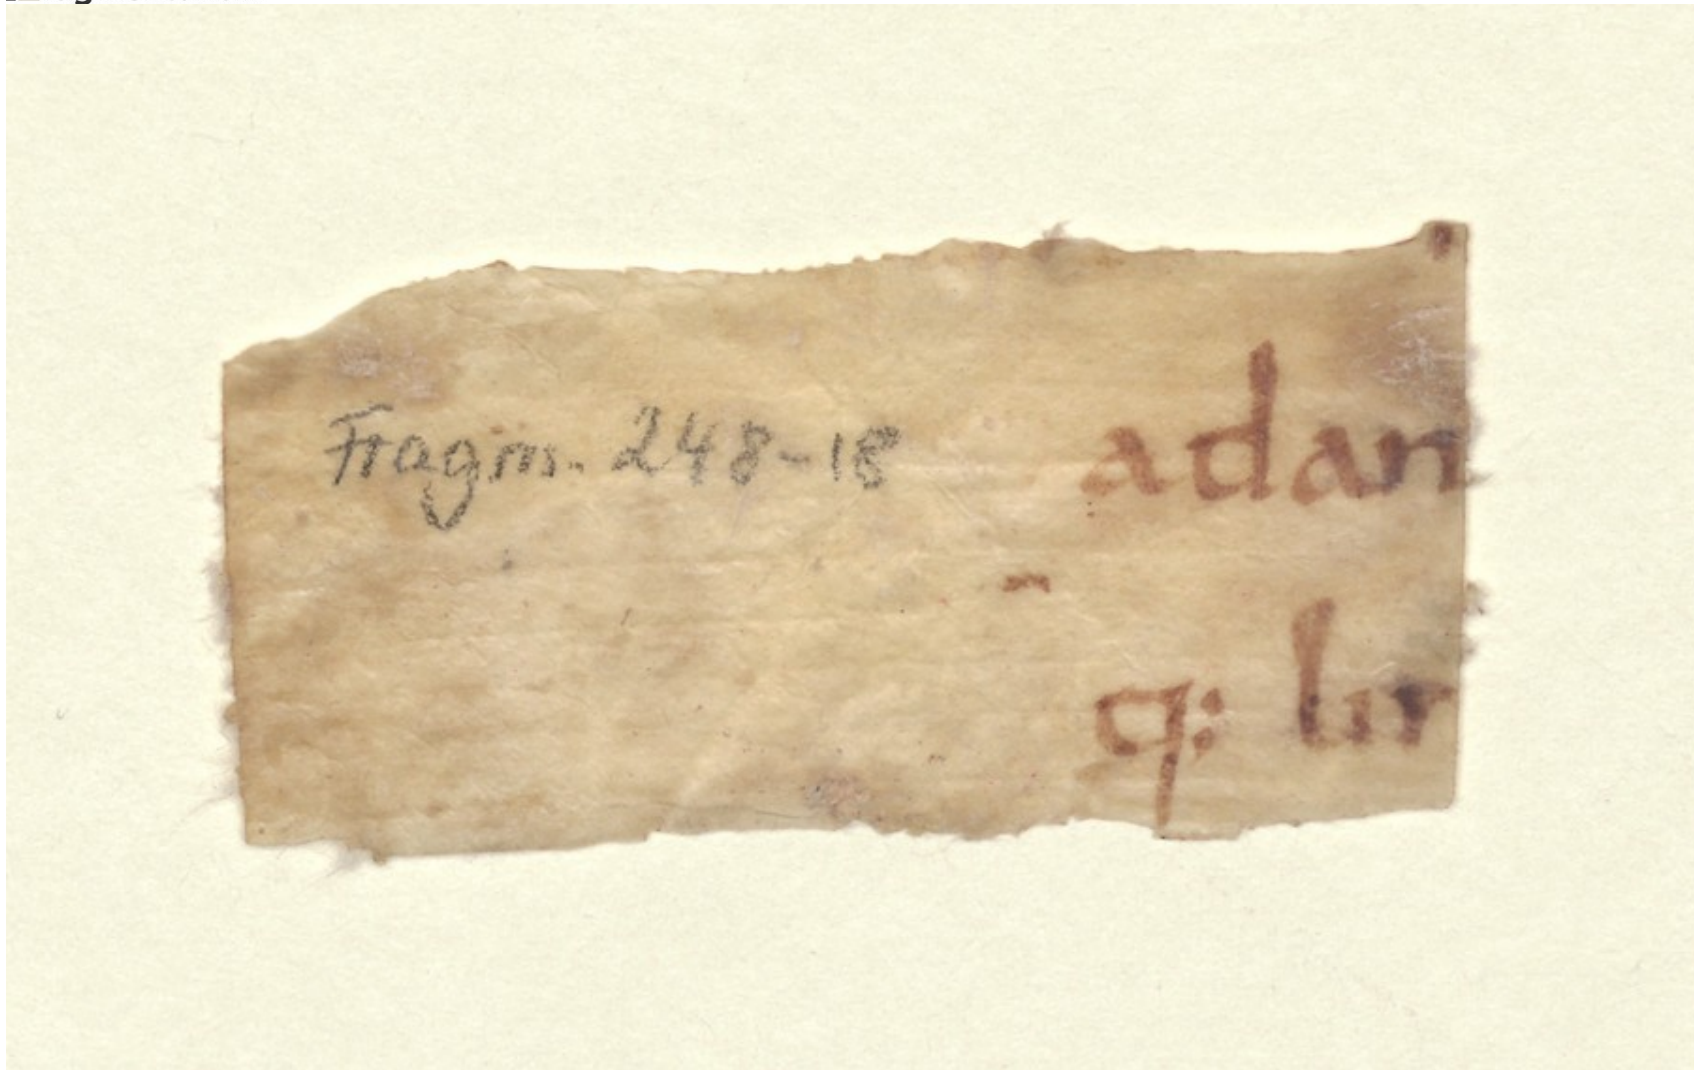 Fragm. 248-18
adan
q: lir